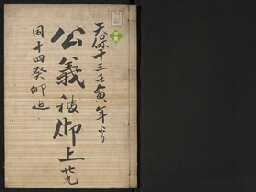 天保十三壬寅年より
公義被仰上
同十四癸卯迄